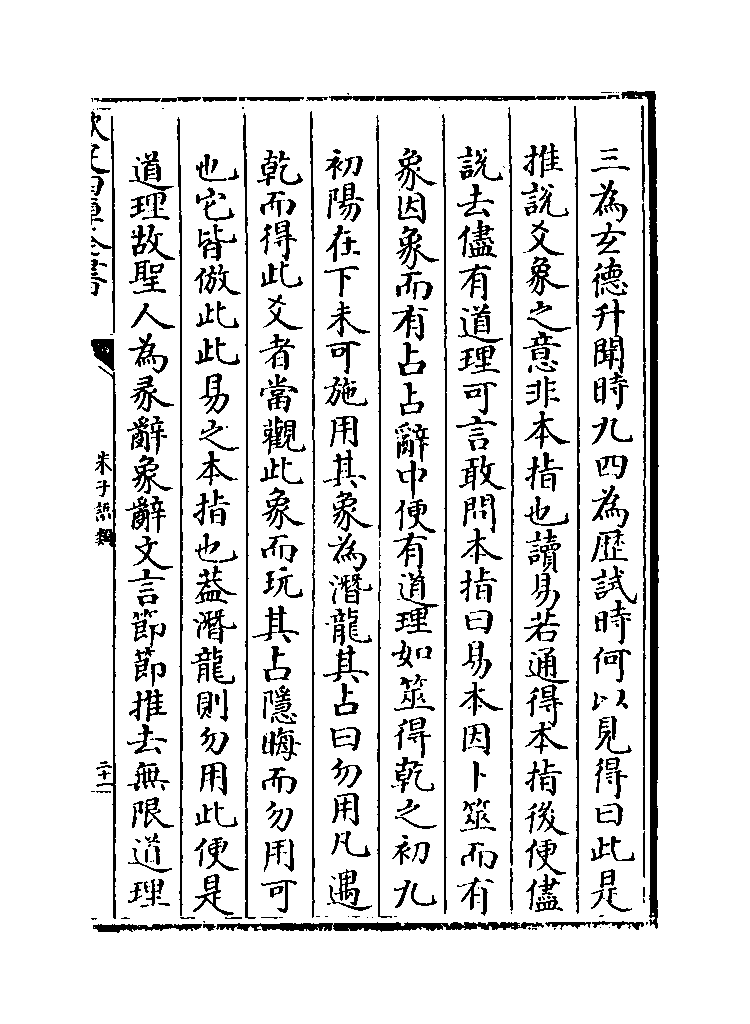 三為玄德升聞時九四為歴試時何以見得曰此是
推説爻象之意非本指也讀易若通得本指後便儘
説去儘有道理可言敢問本指曰易本因卜筮而有
象因象而有占占辭中便有道理如筮得乾之初九
初陽在下未可施用其象為潛龍其占曰勿用凡遇
乾而得此爻者當觀此象而玩其占隱晦而勿用可
也它皆倣此此易之本指也葢潛龍則勿用此便是
道理故聖人為彖辭象辭文言節節推去無限道理
朱子語類